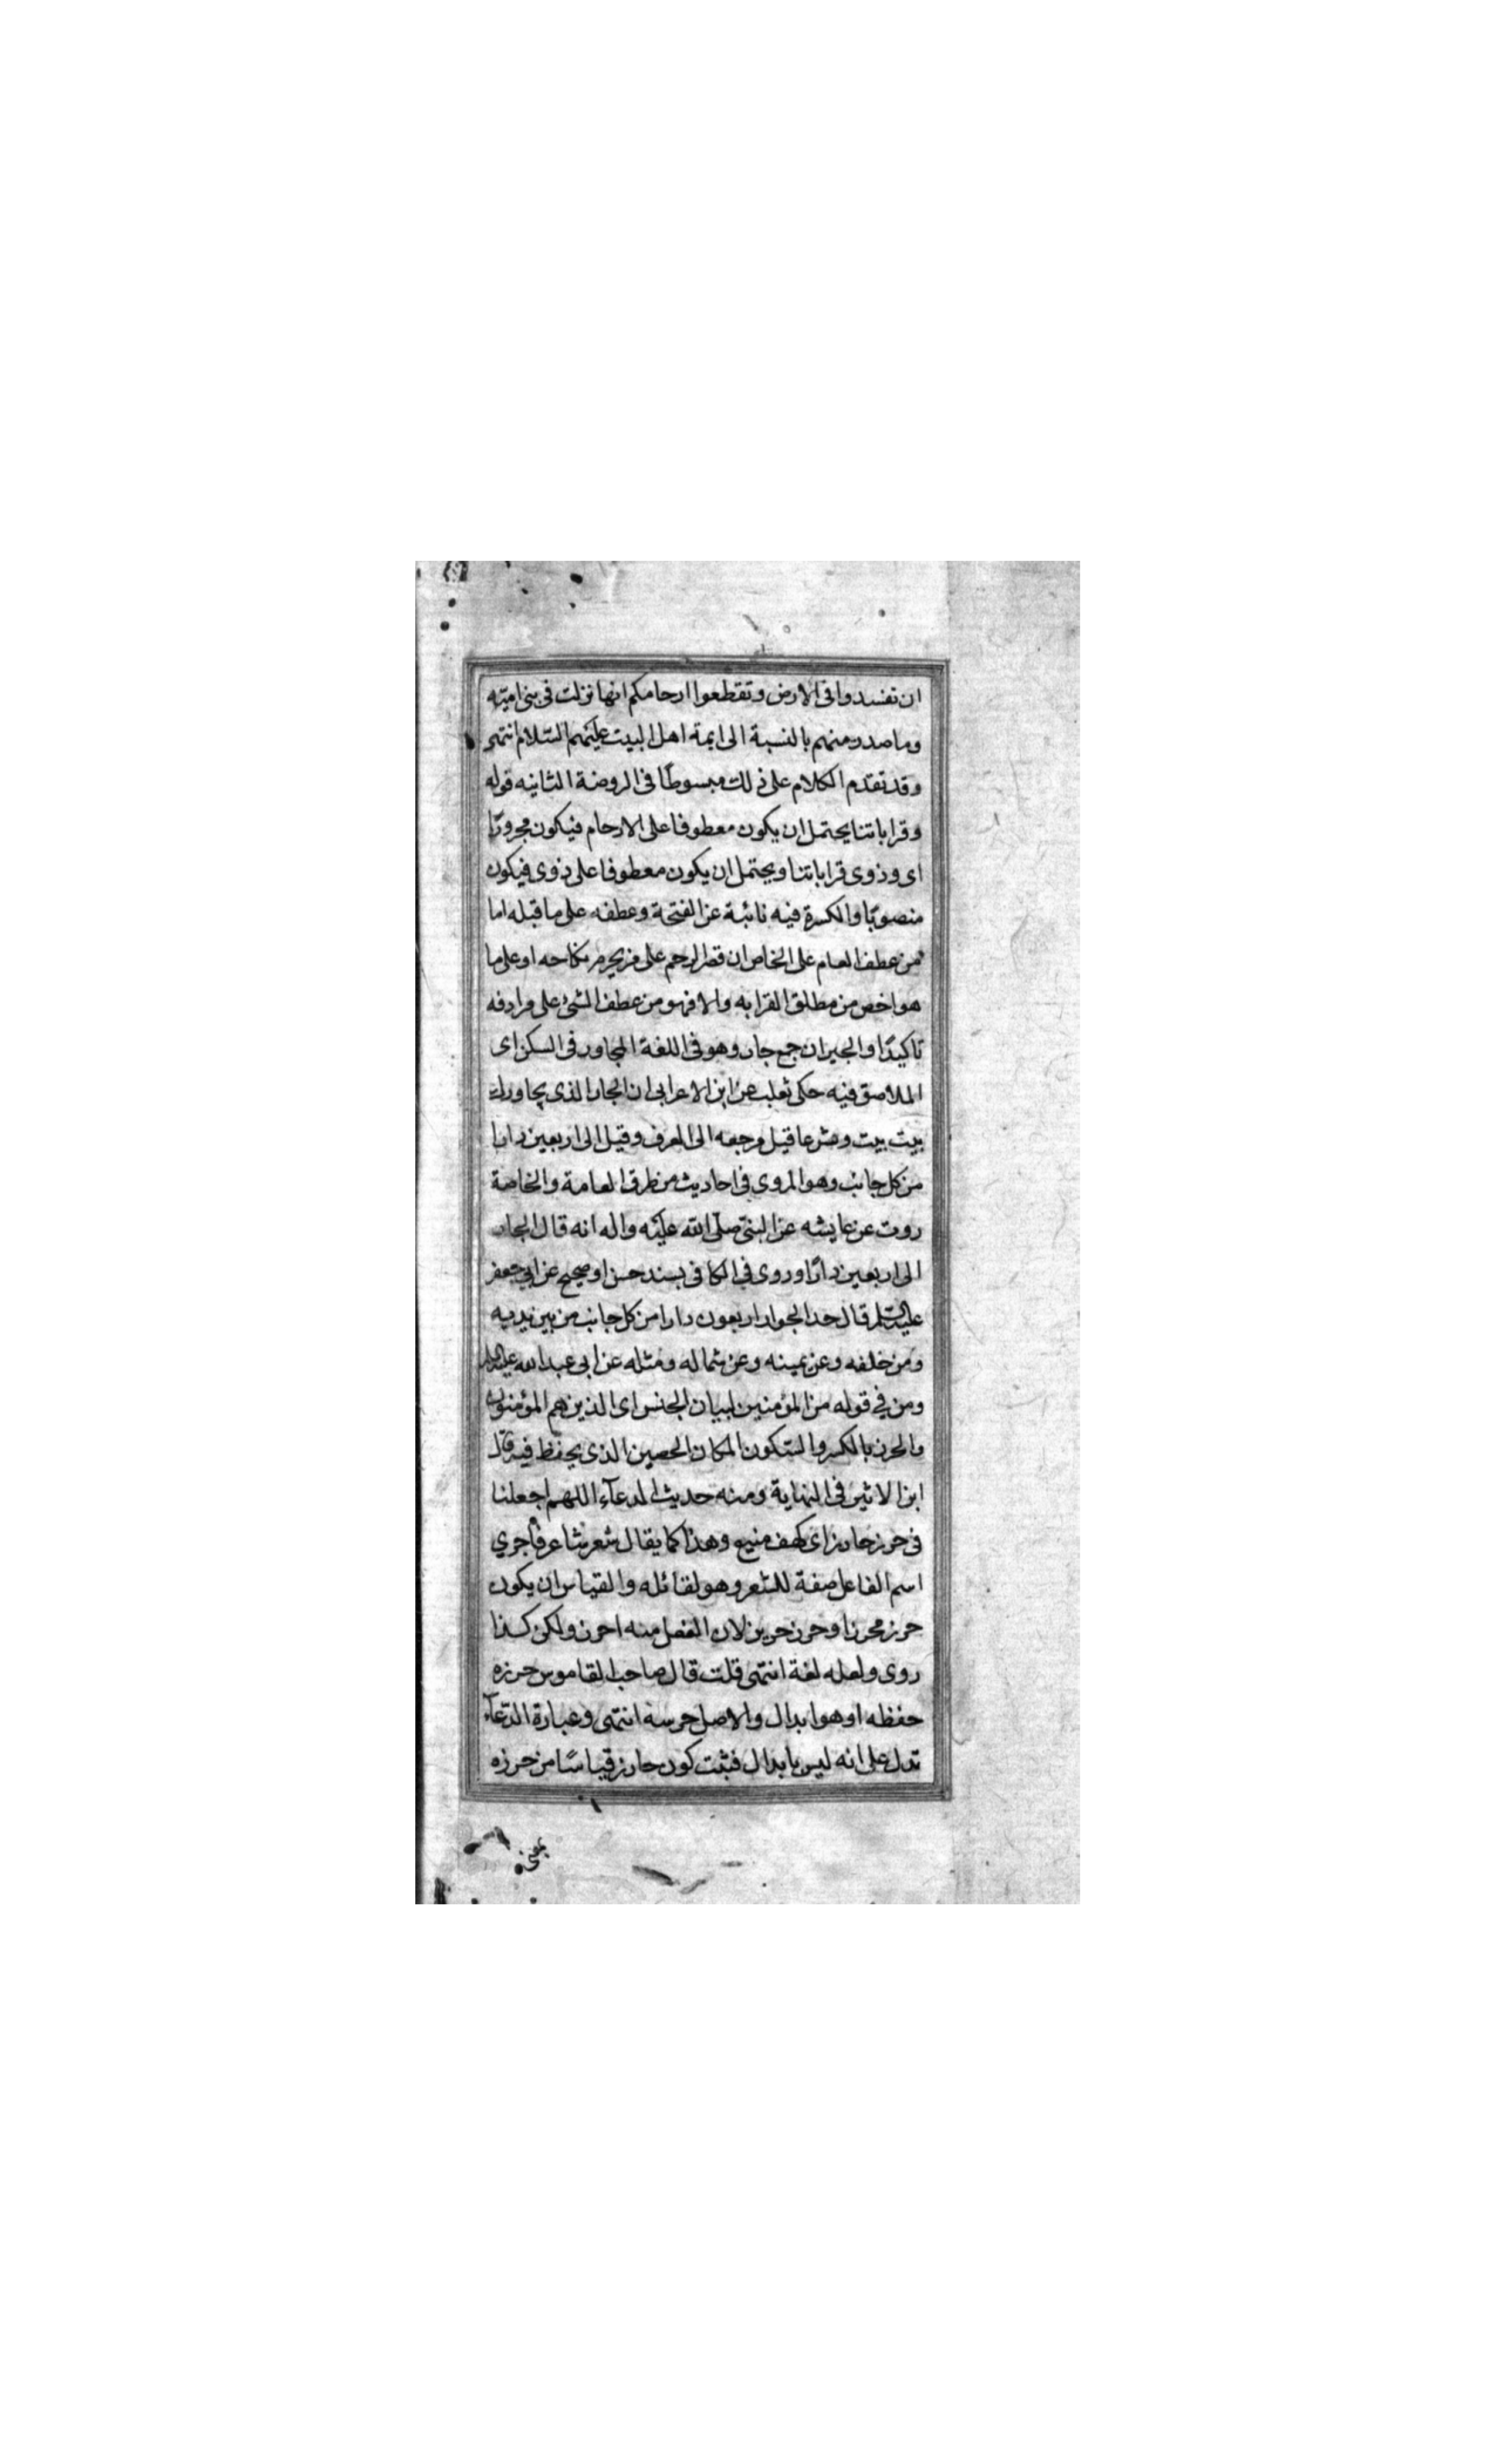 ان تفسدوا فى الارض وتقطعوا ارحامكم انها نزلت فى بنى اميّه
وما صدر منهم بالنسبة الى ايمة اهل البيت عليهم السّلام انتهى
وقد تقدم الكلام على ذلك مبسوطًا فى الروضة الثانيه قوله
وقراباتنا يحتمل ان يكون معطوفا على الارحام فيكون مجرورًا
اى وذوى قراباتنا ويحتمل ان يكون معطوفا على ذوى فيكون
منصوبًا والكسرة فيه نائبة عن الفتحة وعطفه على ما قبله اما
من عطف العام على الخاص ان قصر الرحم على من يحرم نكاحه او على ما
هو اخص من مطلق القرابه والا فهو من عطف الشئ على مرادفه
تاكيدًا والجيران جمع جار وهو فى اللغة المجاور فى السكن اى
الملاصق فيه حكى ثعلب عن ابن الاعرابى ان الجار الذى يجاورك
بيت بيت وشرعا قيل مرجعه الى العرف وقيل الى اربعين دارا
من كل جانب وهو المروى فى احاديث من طرق العامة والخاصة
روت عن عايشه عن النبىّ صلّى الله عليه واله انه قال الجار
الى اربعين دارًا وروى فى الكافى بسند حسن او صحيح عن ابى جعفر
عليه السّلم قال حد الجوار اربعون دارا من كل جانب من بين يديه
ومن خلفه وعن يمينه وعن شماله ومثله عن ابى عبد الله عليه السلم
ومن فى قوله من المؤمنين لبيان الجنس اى الذين هم المؤمنون
والحرز بالكسر والسّكون المكان الحصين الذى يحفظ فيه قال
ابن الاثير فى النهاية ومنه حديث الدعآء اللهم اجعلنا
فى حرز حارز اى كهف منيع وهذا كما يقال شعر شاعر فاجري
اسم الفاعل صفة للشعر وهو لقائله والقياس ان يكون
حرز محرز او حرز حريز لان الفعل منه احرز ولكن كذا
روى ولعله لغة انتهى قلت قال صاحب القاموس حرزه
حفظه او هو ابدال والاصل حرسه انتهى وعبارة الدّعآء
تدل على انه ليس بابدال فثبت كون حارز قياسًا من حرزه
بمعنى